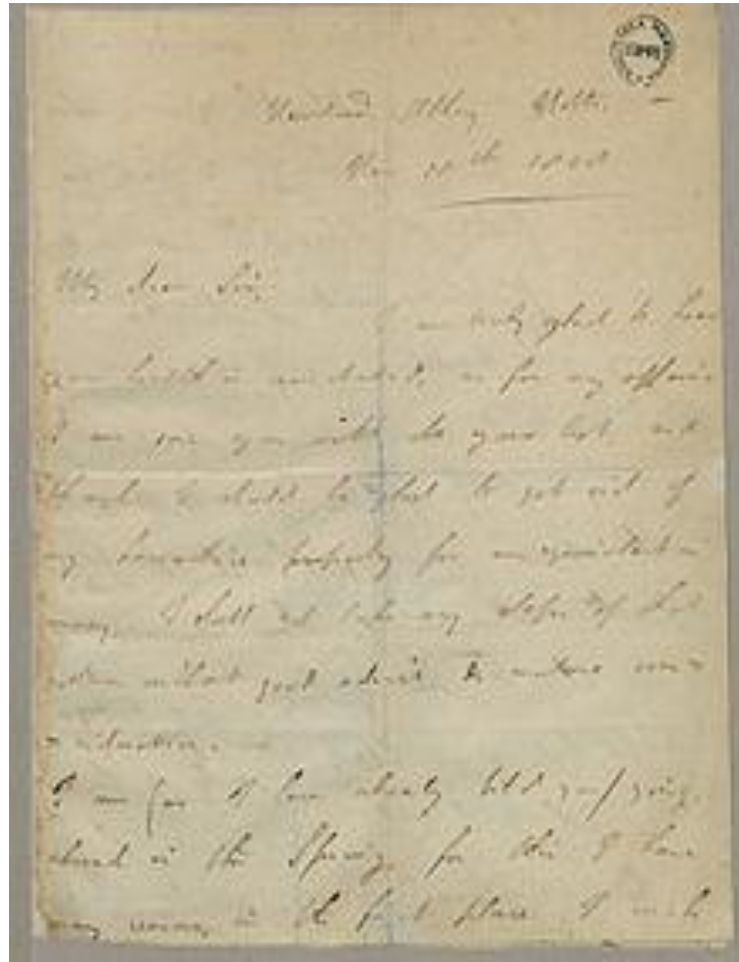 Newstead Abbey Notts. —
Nov
My dear Sir,
I am truly glad to hear
your health is reinstated, as for my affairs
I am sure you will do your best, and
though I should be glad to get rid of
my Lancashire property for an equivalent in
money, I shall not take any steps of that
nature without good advice & mature con-
sideration. —
I am (as I have already told you) going
abroad in the Spring, for this I have
many reasons, in the first place I wish